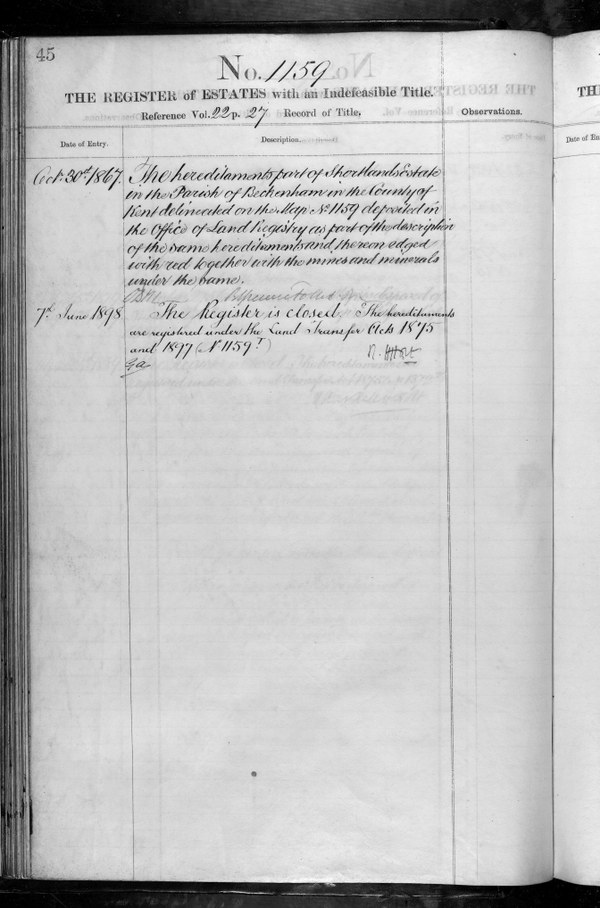 45
No. 1159
THE REGISTER of ESTATES with an Indefeasible Title.
Reference Vol. 22 p. 27 Record of Title,
Observations.
Date of Entry.
Description.
Octr 30th 1867.
The hereditaments part of Shortlands Estate
in the Parish of Beckenham in the County of
Kent delineated on the Map No 1159 deposited in
the Office of Land Registry as part of the description
of the same hereditaments and thereon edged
with red together with the mines and minerals
under the same.
7th June 1898
The Register is closed. The hereditaments
are registered under the Land Transfer Acts 1875
and 1897 (No 1159 T)
TH
Date of En